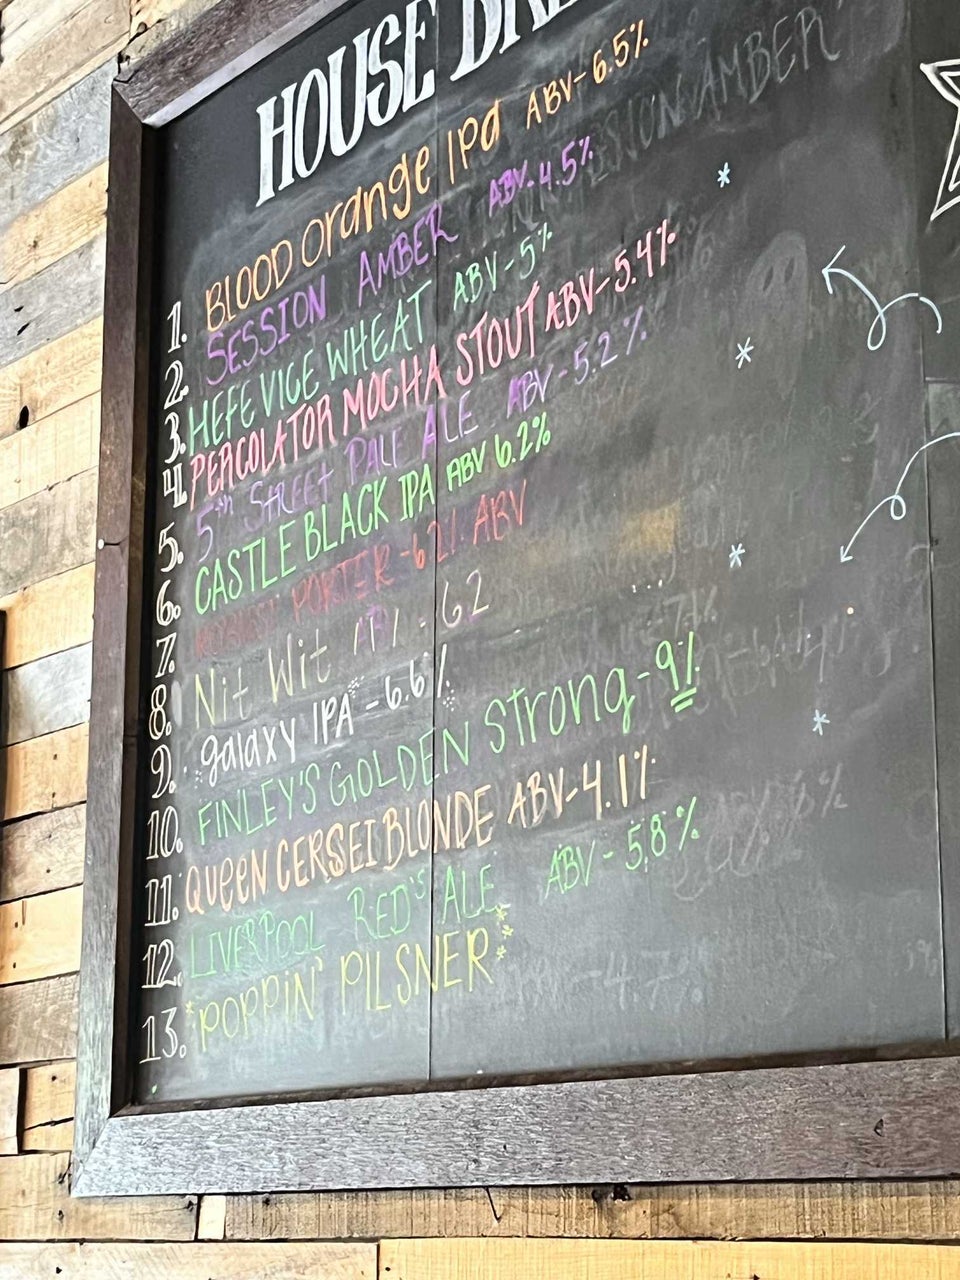 HOUSE
1. BLOOD Orange IPa ABV-6.5%
2. SESSION AMBER ABV-4.5%
3. HEFE VICE WHEAT ABV-5%
4. PERCOLATOR MOCHA STOUT ABV-5.4%
5. 5th STREET PALE ALE ABV-5.2%
6. CASTLE BLACK IPA ABV 6.2%
7. PORTER-6.2% ABV
8. Nit Wit - 6.2
9. galaxy IPA - 6.6%
10. FINLEY'S GOLDEN Strong-9%
11. QUEEN CERSEI BLONDE ABV-4.1%
12. LIVERPOOL RED'S ALE ABV - 5.8%
13. *POPPIN' PILSNER* -4.7%